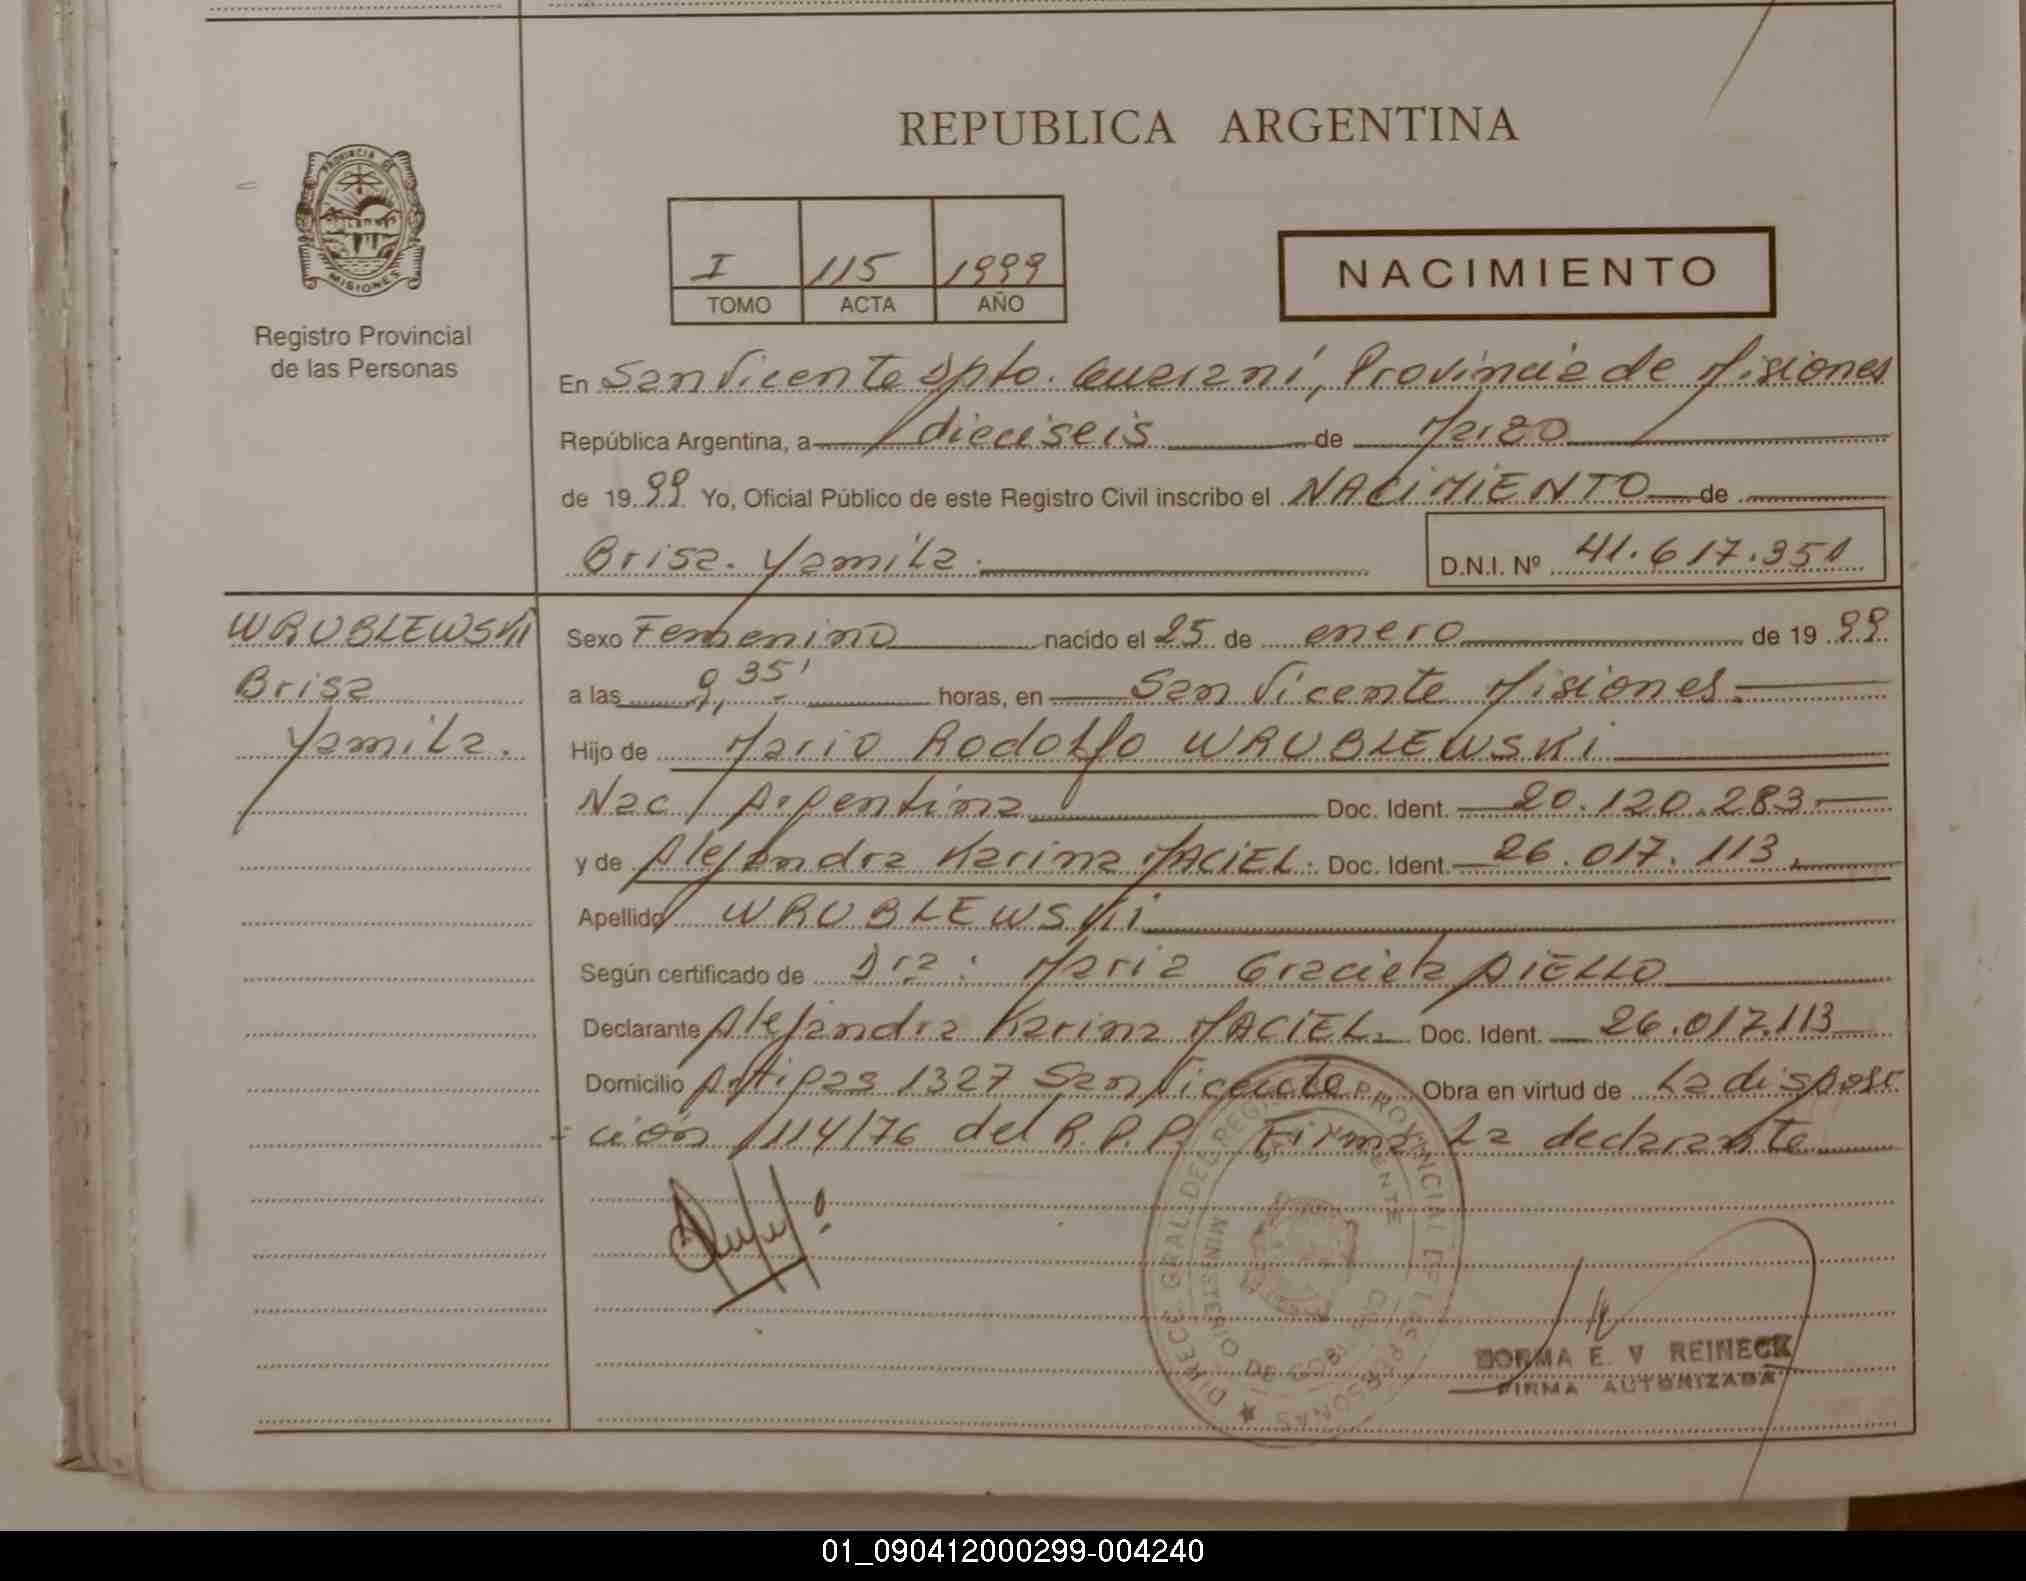 REPUBLICA ARGENTINA
PROVINCIA DE
MISIONES
Registro Provincial
de las Personas
I 115 1999
TOMO ACTA AÑO
NACIMIENTO
En San Vicente Dpto. Guaraní, Provincia de Misiones
República Argentina, a dieciseis de Marzo
de 1999 Yo, Oficial Público de este Registro Civil inscribo el NACIMIENTO de
Brisa Yamila.
D.N.I. Nº 41.617.351
WRUBLEWSKI
Brisa
Yamila.
Sexo Femenino nacido el 25 de enero de 1999
a las 9,35' horas, en San Vicente Misiones.
Hijo de Mario Rodolfo WRUBLEWSKI
Nac Argentina Doc. Ident. 20.120.283
y de Alejandra Karina MACIEL. Doc. Ident. 26.017.113.
Apellido WRUBLEWSKI
Según certificado de Dra: Maria Graciela AIELLO
Declarante Alejandra Karina MACIEL. Doc. Ident. 26.017.113
Domicilio Artigas 1327 San Vicente Obra en virtud de La disposi
- ción 1114/76 del R.P.P. Firma La declarante
DIRECC. GRAL. DEL REGISTRO PROVINCIAL DE LAS PERSONAS
MINISTERIO DE GOBIERNO
NORMA E. V REINECK
FIRMA AUTORIZADA
01_090412000299-004240